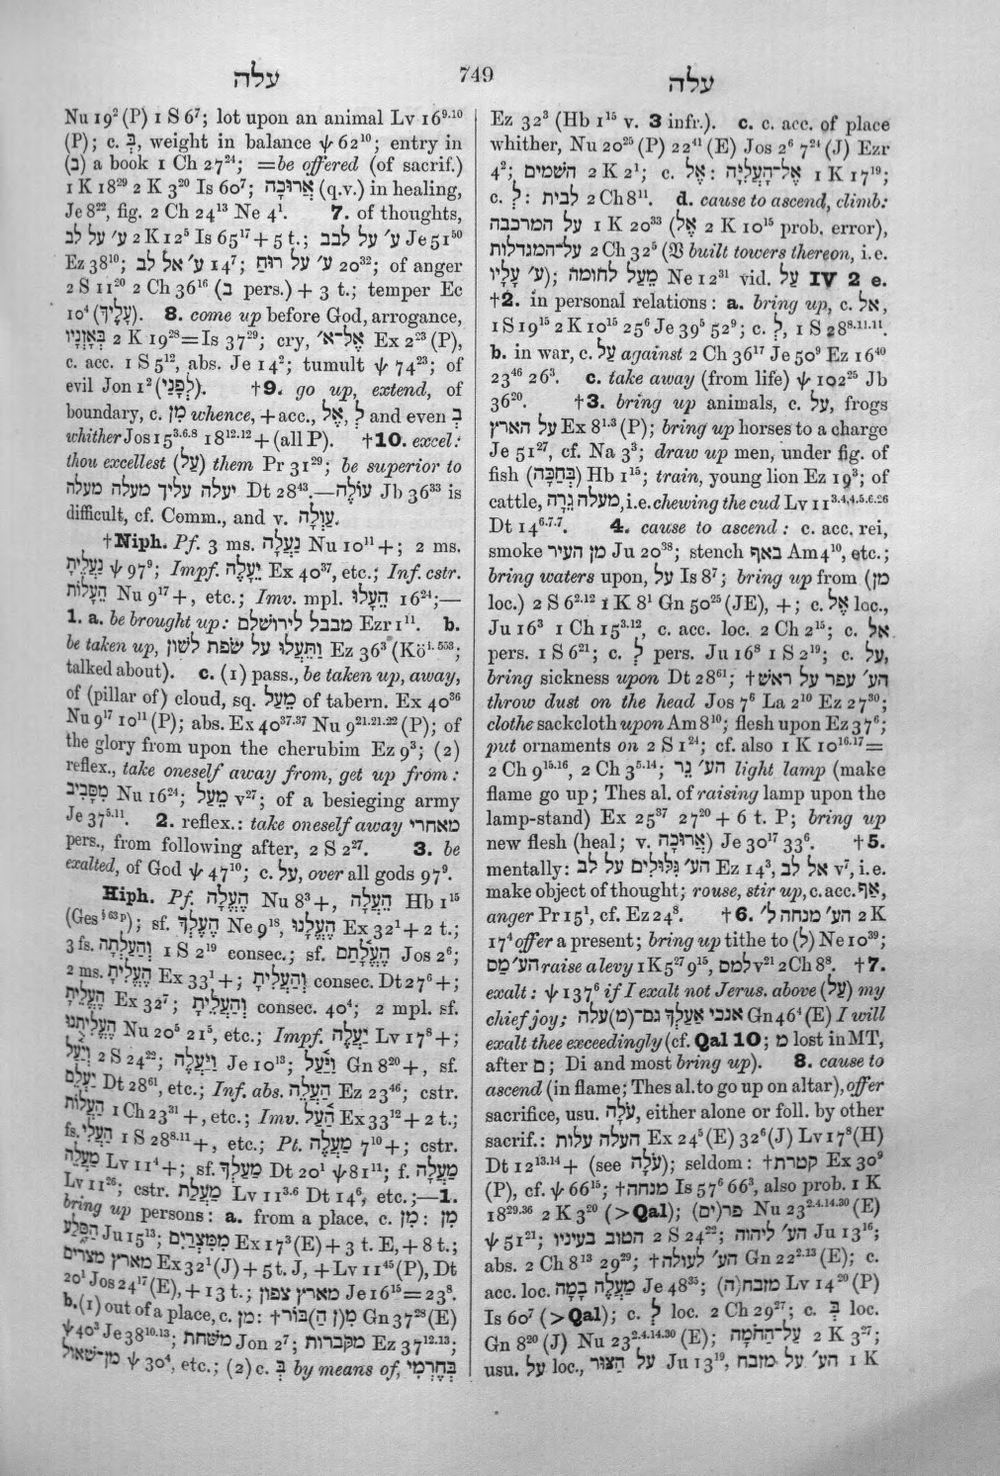 עלה
749
עלה
Nu 19² (P) 1 S 6⁷; lot upon an animal Lv 16⁹·¹⁰
(P); c. בְּ, weight in balance ψ 62¹⁰; entry in
(ב) a book 1 Ch 27²⁴; =be offered (of sacrif.)
1 K 18²⁹ 2 K 3²⁰ Is 60⁷; אֲרוּכָה (q.v.) in healing,
Je 8²², fig. 2 Ch 24¹³ Ne 4¹. 7. of thoughts,
ע׳ על לב 2 K 12⁵ Is 65¹⁷ + 5 t.; ע׳ על לבב Je 51⁵⁰
Ez 38¹⁰; ע׳ אל לב 14⁷; ע׳ על רוּחַ 20³²; of anger
2 S 11²⁰ 2 Ch 36¹⁶ (ב pers.) + 3 t.; temper Ec
10⁴ (עָלֶיךָ). 8. come up before God, arrogance,
בְּאָזְנָיו 2 K 19²⁸=Is 37²⁹; cry, אֶל־א׳ Ex 2²³ (P),
c. acc. 1 S 5¹², abs. Je 14²; tumult ψ 74²³; of
evil Jon 1² (לְפָנַי). †9. go up, extend, of
boundary, c. מִן whence, + acc., אֶל, לְ and even בְּ
whither Jos 15³·⁶·⁸ 18¹²·¹² + (all P). †10. excel:
thou excellest (עַל) them Pr 31²⁹; be superior to
יעלה עליך מעלה מעלה Dt 28⁴³.—עוֹלֶה Jb 36³³ is
difficult, cf. Comm., and v. עַוְלָה.
†Niph. Pf. 3 ms. נַעֲלָה Nu 10¹¹ +; 2 ms.
נַעֲלֵיתָ ψ 97⁹; Impf. יֵעָלֶה Ex 40³⁷, etc.; Inf. cstr.
הֵעָלוֹת Nu 9¹⁷ +, etc.; Imv. mpl. הֵעָלוּ 16²⁴;—
1. a. be brought up: מבבל לירושׁלם Ezr 1¹¹. b.
be taken up, וַתֵּעֲלוּ על שׂפת לשׁון Ez 36³ (Köⁱ·⁵⁵³;
talked about). c. (1) pass., be taken up, away,
of (pillar of) cloud, sq. מֵעַל of tabern. Ex 40³⁶
Nu 9¹⁷ 10¹¹ (P); abs. Ex 40³⁷·³⁷ Nu 9²¹·²¹·²² (P); of
the glory from upon the cherubim Ez 9³; (2)
reflex., take oneself away from, get up from:
מִסָּבִיב Nu 16²⁴; מֵעַל v²⁷; of a besieging army
Je 37⁵·¹¹. 2. reflex.: take oneself away מאחרי
pers., from following after, 2 S 2²⁷. 3. be
exalted, of God ψ 47¹⁰; c. עַל, over all gods 97⁹.
Hiph. Pf. הֶעֱלָה Nu 8³ +, הֵעֲלָה Hb 1¹⁵
(Ges§⁶³ᵖ); sf. הֶעֶלְךָ Ne 9¹⁸, הֶעֱלָנוּ Ex 32¹ + 2 t.;
3 fs. וְהַעַלְתָה 1 S 2¹⁹ consec.; sf. הֶעֱלָתַם Jos 2⁶;
2 ms. הֶעֱלִיתָ Ex 33¹ +; וְהַעֲלִיתָ consec. Dt 27⁶ +;
הֶעֱלֵיתָ Ex 32⁷; וְהַעֲלֵיתָ consec. 40⁴; 2 mpl. sf.
הֶעֱלִיתֻנוּ Nu 20⁵ 21⁵, etc.; Impf. יַעֲלֶה Lv 17⁸ +;
וְיַעַל 2 S 24²²; וַיַּעֲלֶה Je 10¹³; וַיַּעַל Gn 8²⁰ +, sf.
יַעְלֵם Dt 28⁶¹, etc.; Inf. abs. הַעֲלֵה Ez 23⁴⁶; cstr.
הַעֲלוֹת 1 Ch 23³¹ +, etc.; Imv. הַעַל Ex 33¹² + 2 t.;
fs. הַעֲלִי 1 S 28⁸·¹¹ +, etc.; Pt. מַעֲלֶה 7¹⁰ +; cstr.
מַעֲלֵה Lv 11⁴ +; sf. מַעַלְךָ Dt 20¹ ψ 81¹¹; f. מַעֲלָה
Lv 11²⁶; cstr. מַעֲלַת Lv 11³·⁶ Dt 14⁶, etc.;—1.
bring up persons: a. from a place, c. מִן: מִן
הַסֶּלַע Ju 15¹³; מִמִּצְרַיִם Ex 17³ (E) + 3 t. E, + 8 t.;
מארץ מצרים Ex 32¹ (J) + 5 t. J, + Lv 11⁴⁵ (P), Dt
20¹ Jos 24¹⁷ (E), + 13 t.; מארץ צפון Je 16¹⁵ = 23⁸.
b. (1) out of a place, c. מִן: †מִ(ן הַ)בּוֹר Gn 37²⁸ (E)
ψ 40³ Je 38¹⁰·¹³; משׁחת Jon 2⁷; מקברות Ez 37¹²·¹³;
מן־שׁאול ψ 30⁴, etc.; (2) c. בְּ by means of, בְּחֶרְמִי
Ez 32³ (Hb 1¹⁵ v. 3 infr.). c. c. acc. of place
whither, Nu 20²⁵ (P) 22⁴¹ (E) Jos 2⁶ 7²⁴ (J) Ezr
4²; השׁמים 2 K 2¹; c. אֶל: אֶל־הָעֲלִיָּה 1 K 17¹⁹;
c. לְ: לבית 2 Ch 8¹¹. d. cause to ascend, climb:
על המרכבה 1 K 20³³ (אֶל 2 K 10¹⁵ prob. error),
על־המגדלות 2 Ch 32⁵ (𝔙 built towers thereon, i.e.
ע׳ עָלָיו); מֵעַל לחומה Ne 12³¹ vid. עַל IV 2 e.
†2. in personal relations: a. bring up, c. אֶל,
1 S 19¹⁵ 2 K 10¹⁵ 25⁶ Je 39⁵ 52⁹; c. לְ, 1 S 28⁸·¹¹·¹¹.
b. in war, c. עַל against 2 Ch 36¹⁷ Je 50⁹ Ez 16⁴⁰
23⁴⁶ 26³. c. take away (from life) ψ 102²⁵ Jb
36²⁰. †3. bring up animals, c. עַל, frogs
על הארץ Ex 8¹·³ (P); bring up horses to a charge
Je 51²⁷, cf. Na 3³; draw up men, under fig. of
fish (בְּחַכָּה) Hb 1¹⁵; train, young lion Ez 19³; of
cattle, מעלה גֵרָה, i.e. chewing the cud Lv 11³·⁴·⁴·⁵·⁶·²⁶
Dt 14⁶·⁷·⁷. 4. cause to ascend: c. acc. rei,
smoke מן העיר Ju 20³⁸; stench באף Am 4¹⁰, etc.;
bring waters upon, עַל Is 8⁷; bring up from (מִן
loc.) 2 S 6²·¹² 1 K 8¹ Gn 50²⁵ (JE), +; c. אֶל loc.,
Ju 16³ 1 Ch 15³·¹², c. acc. loc. 2 Ch 2¹⁵; c. אֶל
pers. 1 S 6²¹; c. לְ pers. Ju 16⁸ 1 S 2¹⁹; c. עַל,
bring sickness upon Dt 28⁶¹; †הע׳ עפר על ראשׁ
throw dust on the head Jos 7⁶ La 2¹⁰ Ez 27³⁰;
clothe sackcloth upon Am 8¹⁰; flesh upon Ez 37⁶;
put ornaments on 2 S 1²⁴; cf. also 1 K 10¹⁶·¹⁷ =
2 Ch 9¹⁵·¹⁶, 2 Ch 3⁵·¹⁴; הע׳ נֵר light lamp (make
flame go up; Thes al. of raising lamp upon the
lamp-stand) Ex 25³⁷ 27²⁰ + 6 t. P; bring up
new flesh (heal; v. אֲרוּכָה) Je 30¹⁷ 33⁶. †5.
mentally: הע׳ גִּלּוּלִים על לב Ez 14³, אל לב v⁷, i.e.
make object of thought; rouse, stir up, c. acc. אַף,
anger Pr 15¹, cf. Ez 24⁸. †6. הע׳ מנחה ל׳ 2 K
17⁴ offer a present; bring up tithe to (לְ) Ne 10³⁹;
הע׳ מַס raise a levy 1 K 5²⁷ 9¹⁵, לְמס v²¹ 2 Ch 8⁸. †7.
exalt: ψ 137⁶ if I exalt not Jerus. above (עַל) my
chief joy; אנכי אַעַלְךָ גם־(מ)עלה Gn 46⁴ (E) I will
exalt thee exceedingly (cf. Qal 10; מ lost in MT,
after ם; Di and most bring up). 8. cause to
ascend (in flame; Thes al. to go up on altar), offer
sacrifice, usu. עֹלָה, either alone or foll. by other
sacrif.: העלה עלות Ex 24⁵ (E) 32⁶ (J) Lv 17⁸ (H)
Dt 12¹³·¹⁴ + (see עֹלָה); seldom: †קטרת Ex 30⁹
(P), cf. ψ 66¹⁵; †מנחה Is 57⁶ 66³, also prob. 1 K
18²⁹·³⁶ 2 K 3²⁰ (> Qal); פר(ים) Nu 23²·⁴·¹⁴·³⁰ (E)
ψ 51²¹; הטוב בעיניו 2 S 24²²; הע׳ ליהוה Ju 13¹⁶;
abs. 2 Ch 8¹³ 29²⁹; †הע׳ לעולה Gn 22²·¹³ (E); c.
acc. loc. מַעֲלֶה בָמָה Je 48³⁵; (ה)מזבח Lv 14²⁰ (P)
Is 60⁷ (> Qal); c. לְ loc. 2 Ch 29²⁷; c. בְּ loc.
Gn 8²⁰ (J) Nu 23²·⁴·¹⁴·³⁰ (E); עַל־הַחֹמָה 2 K 3²⁷;
usu. עַל loc., על הַצּוּר Ju 13¹⁹, הע׳ על מזבח 1 K